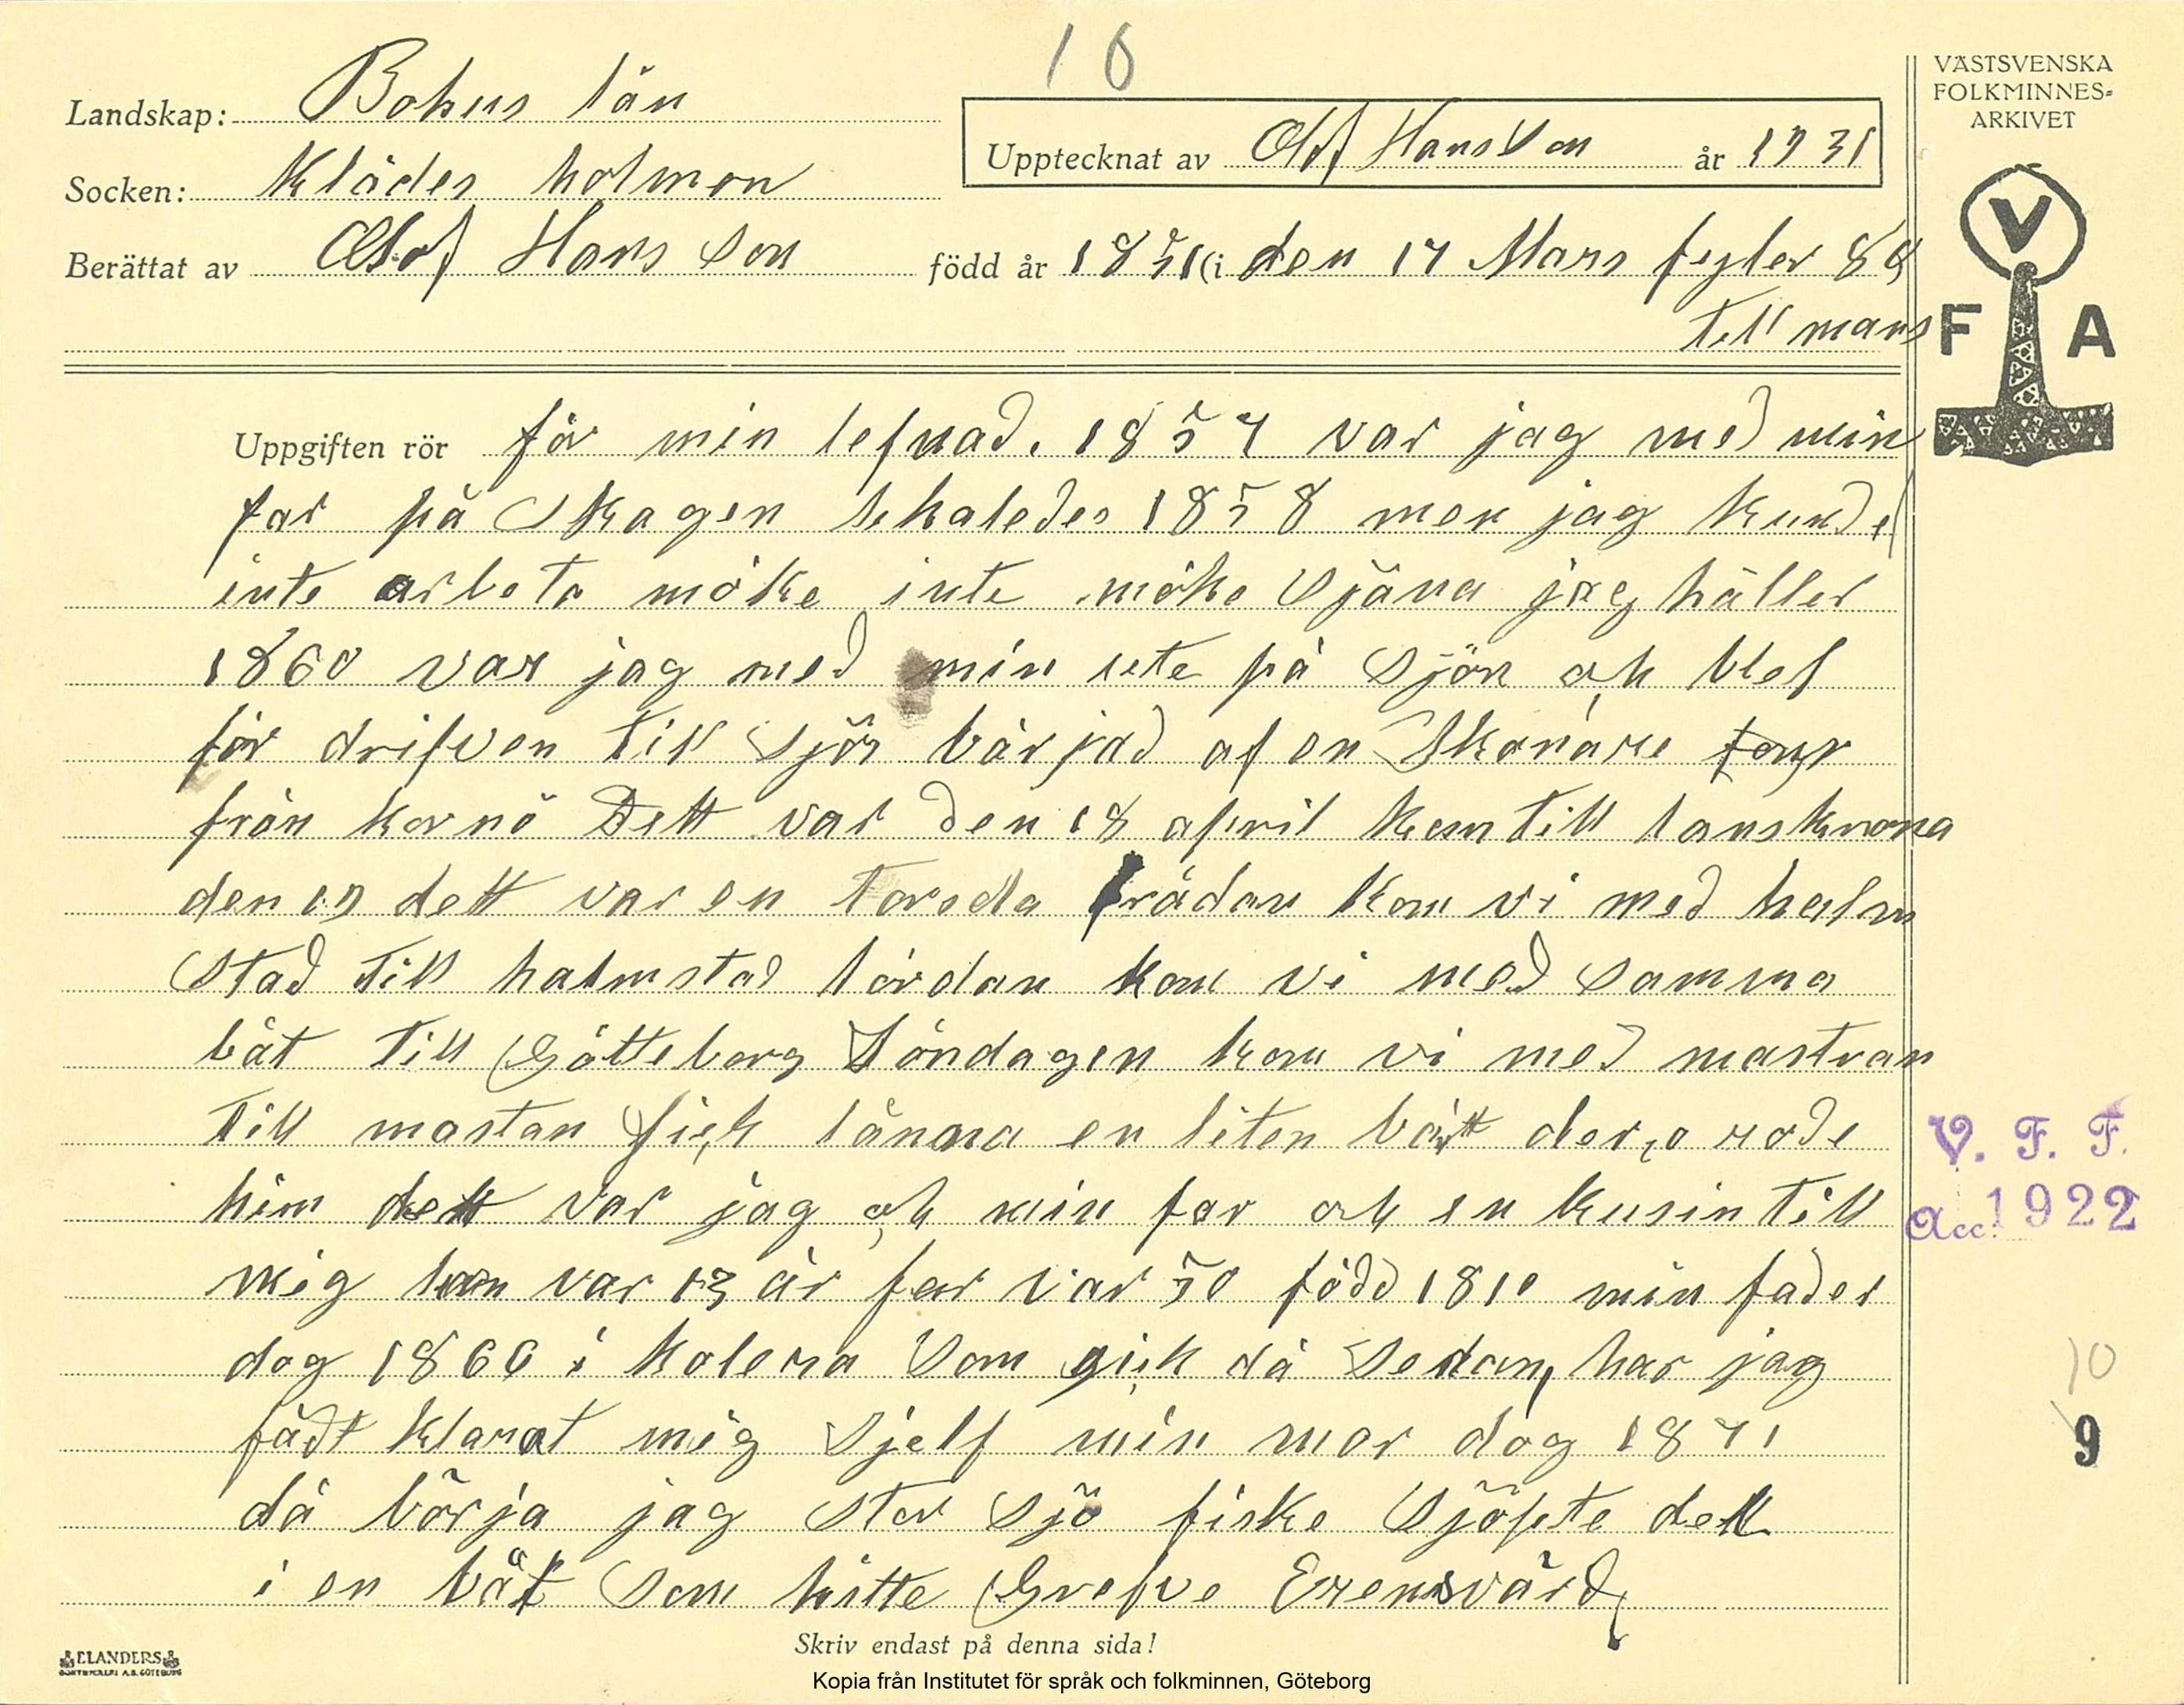 10
Landskap: Bohus län
VÄSTSVENSKA
FOLKMINNES-
ARKIVET
Upptecknat av Olof Hansson år 1931
Socken: Klädes holmen
Berättat av Olof Hans son född år 1851 (i den 17 Mars fyler 80
till mars
V
F A
Uppgiften rör för min lefnad. 1857 var jag med min
far på Skagen lehaledes 1858 men jag kunde
inte arbeta möke inte möke Sjäna jag häller
1860 var jag med min ute på Sjön ok blef
för drifven till Sjös bärjad af en Skånare
från kornö Dett var den 18 april kom till lanskrona
den 19 dett var en Torsda frädan kom vi med halm
Stad till halmstad lördan kom vi med samma
båt till Götteborg Söndagen kom vi med mastran
Till mastan fick lånna en liten bått der o rode
him dett var jag ok min far ok en kusin till
mig han var 13 år far var 50 född 1810 min fader
dog 1866 i kolera som gick då sedan har jag
fådt klarat mig Sjelf min mor dog 1871
då börja jag stor sjö fiske Sjöpte dell
i en båt som hitte Grefve Erensvärd
V. F. F.
Acc. 1922
10
9
ELANDERS
BOKTRYCKERI A.B. GÖTEBORG
Skriv endast på denna sida!
Kopia från Institutet för språk och folkminnen, Göteborg